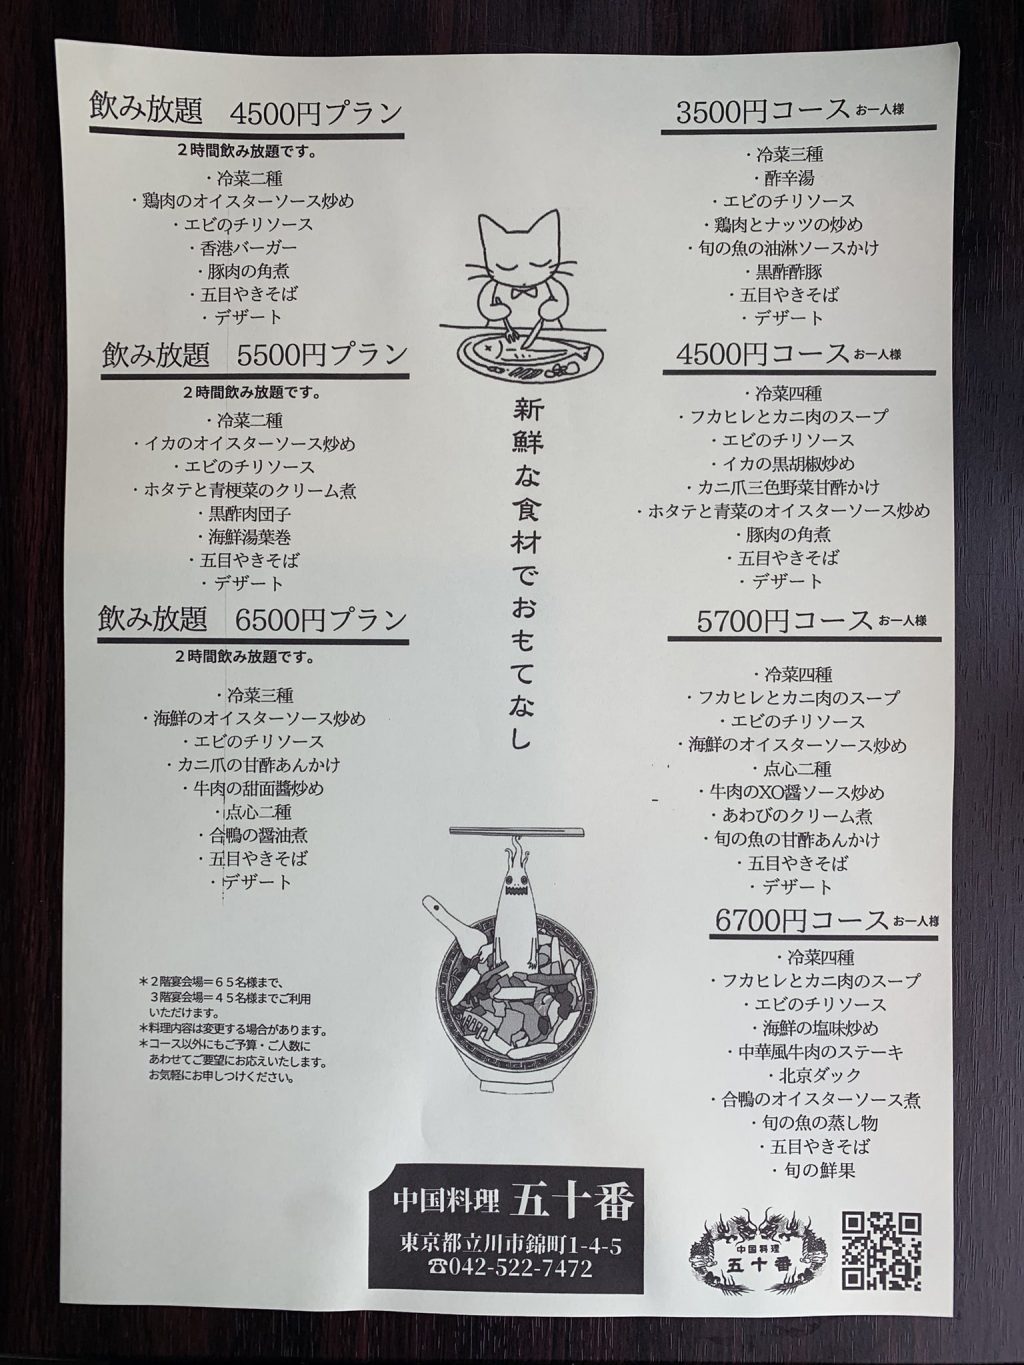 飲み放題　4500円プラン
２時間飲み放題です。
・冷菜二種
・鶏肉のオイスターソース炒め
・エビのチリソース
・香港バーガー
・豚肉の角煮
・五目やきそば
・デザート
飲み放題　5500円プラン
２時間飲み放題です。
・冷菜二種
・イカのオイスターソース炒め
・エビのチリソース
・ホタテと青梗菜のクリーム煮
・黒酢肉団子
・海鮮湯葉巻
・五目やきそば
・デザート
飲み放題　6500円プラン
２時間飲み放題です。
・冷菜三種
・海鮮のオイスターソース炒め
・エビのチリソース
・カニ爪の甘酢あんかけ
・牛肉の甜面醤炒め
・点心二種
・合鴨の醤油煮
・五目やきそば
・デザート
＊２階宴会場＝６５名様まで、
３階宴会場＝４５名様までご利用
いただけます。
＊料理内容は変更する場合があります。
＊コース以外にもご予算・ご人数に
あわせてご要望にお応えいたします。
お気軽にお申しつけください。
新鮮な食材でおもてなし
3500円コースお一人様
・冷菜三種
・酢辛湯
・エビのチリソース
・鶏肉とナッツの炒め
・旬の魚の油淋ソースかけ
・黒酢酢豚
・五目やきそば
・デザート
4500円コースお一人様
・冷菜四種
・フカヒレとカニ肉のスープ
・エビのチリソース
・イカの黒胡椒炒め
・カニ爪三色野菜甘酢かけ
・ホタテと青菜のオイスターソース炒め
・豚肉の角煮
・五目やきそば
・デザート
5700円コースお一人様
・冷菜四種
・フカヒレとカニ肉のスープ
・エビのチリソース
・海鮮のオイスターソース炒め
・点心二種
・牛肉のXO醤ソース炒め
・あわびのクリーム煮
・旬の魚の甘酢あんかけ
・五目やきそば
・デザート
6700円コースお一人様
・冷菜四種
・フカヒレとカニ肉のスープ
・エビのチリソース
・海鮮の塩味炒め
・中華風牛肉のステーキ
・北京ダック
・合鴨のオイスターソース煮
・旬の魚の蒸し物
・五目やきそば
・旬の鮮果
中国料理 五十番
東京都立川市錦町1-4-5
☎042-522-7472
中国料理
五十番